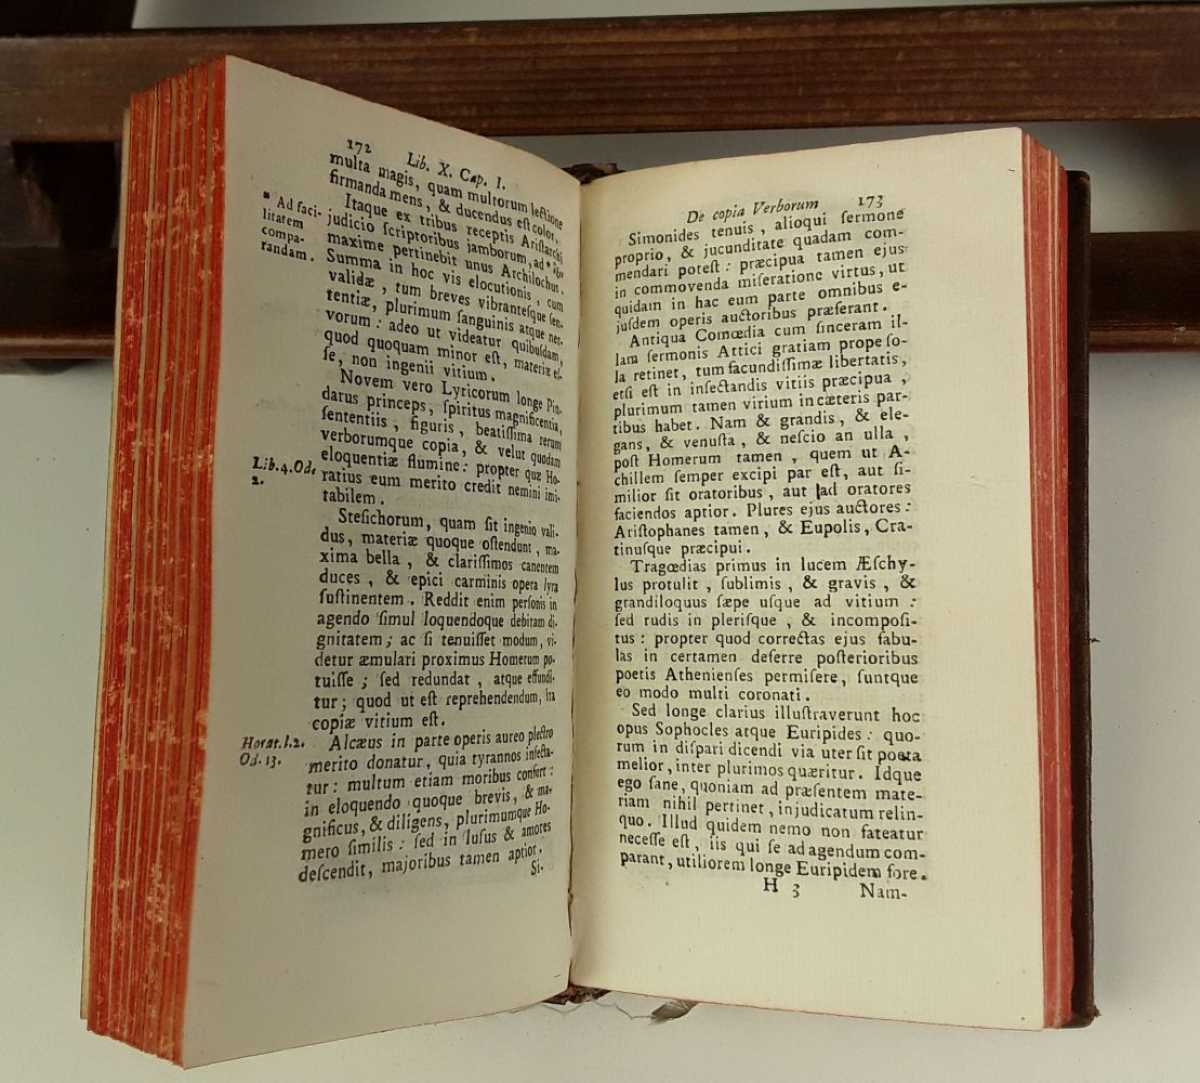 172 Lib. X. Cap. I.
multa magis, quam multorum lectione
firmanda mens, & ducendus eſt color.
Itaque ex tribus receptis Ariſtarchi
judicio ſcriptoribus jamborum, ad *
maxime pertinebit unus Archilochus.
Summa in hoc vis elocutionis, cum
validæ, tum breves vibranteſque ſen-
tentiæ, plurimum ſanguinis atque ner-
vorum: adeo ut videatur quibuſdam,
quod quoquam minor eſt, materiæ eſ-
ſe, non ingenii vitium.
* Ad faci-
litatem
compa-
randam.
Novem vero Lyricorum longe Pin-
darus princeps, ſpiritus magnificentia,
ſententiis, figuris, beatiſſima rerum
verborumque copia, & velut quodam
eloquentiæ flumine: propter quæ Ho-
ratius eum merito credit nemini imi-
tabilem.
Lib. 4. Od.
2.
Steſichorum, quam ſit ingenio vali-
dus, materiæ quoque oſtendunt, ma-
xima bella, & clariſſimos canentem
duces, & epici carminis opera lyra
ſuſtinentem. Reddit enim perſonis in
agendo ſimul loquendoque debitam di-
gnitatem; ac ſi tenuiſſet modum, vi-
detur æmulari proximus Homerum po-
tuiſſe; ſed redundat, atque effundi-
tur; quod ut eſt reprehendendum, ita
copiæ vitium eſt.
Alcæus in parte operis aureo plectro
merito donatur, quia tyrannos inſecta-
tur: multum etiam moribus confert:
in eloquendo quoque brevis, & ma-
gnificus, & diligens, plurimumque Ho-
mero ſimilis: ſed in luſus & amores
deſcendit, majoribus tamen aptior.
Horat. l. 2.
Od. 13.
Si-
De copia Verborum 173
Simonides tenuis, alioqui ſermone
proprio, & jucunditate quadam com-
mendari poteſt: præcipua tamen ejus
in commovenda miſeratione virtus, ut
quidam in hac eum parte omnibus e-
juſdem operis auctoribus præferant.
Antiqua Comœdia cum ſinceram il-
lam ſermonis Attici gratiam prope ſo-
la retinet, tum facundiſſimæ libertatis,
etſi eſt in inſectandis vitiis præcipua,
plurimum tamen virium in cæteris par-
tibus habet. Nam & grandis, & ele-
gans, & venuſta, & neſcio an ulla,
poſt Homerum tamen, quem ut A-
chillem ſemper excipi par eſt, aut ſi-
milior ſit oratoribus, aut ad oratores
faciendos aptior. Plures ejus auctores:
Ariſtophanes tamen, & Eupolis, Cra-
tinuſque præcipui.
Tragœdias primus in lucem Æſchy-
lus protulit, ſublimis, & gravis, &
grandiloquus ſæpe uſque ad vitium:
ſed rudis in pleriſque, & incompoſi-
tus: propter quod correctas ejus fabu-
las in certamen deferre poſterioribus
poetis Athenienſes permiſere, ſuntque
eo modo multi coronati.
Sed longe clarius illuſtraverunt hoc
opus Sophocles atque Euripides: quo-
rum in diſpari dicendi via uter ſit poeta
melior, inter plurimos quæritur. Idque
ego ſane, quoniam ad præſentem mate-
riam nihil pertinet, injudicatum relin-
quo. Illud quidem nemo non fateatur
neceſſe eſt, iis qui ſe ad agendum com-
parant, utiliorem longe Euripidem fore.
H 3 Nam-